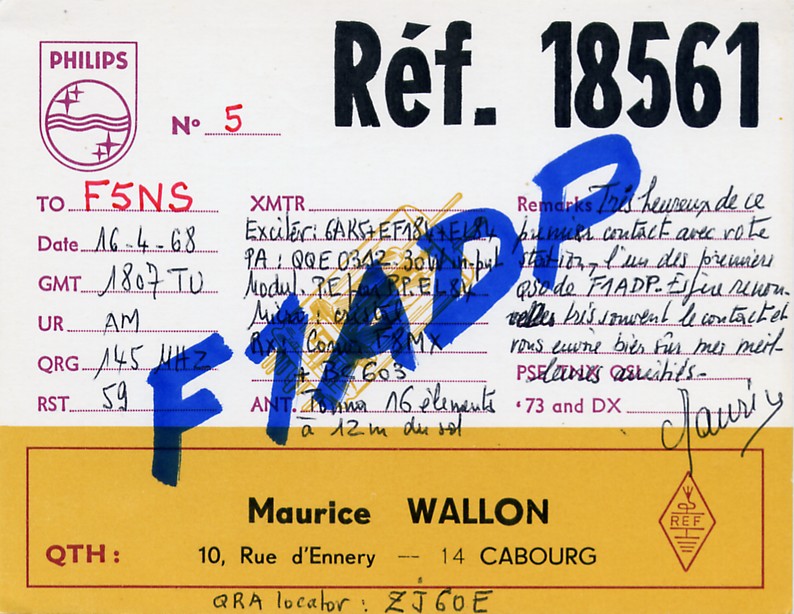 PHILIPS
Réf. 18561
N° 5
TO F5NS
Date 16-4-68
GMT 1807 TU
UR AM
QRG 145 MHZ
RST 59
XMTR
Exciter: 6AK5+EF184+EL84
PA: QQE 0312-30W in-put
Modul. PE PP.EL84
Micro: cristal
Rx: Conv F8MX
+ BC603
ANT. Tonna 16 éléments
à 12m du sol
Remarks Très heureux de ce
premier contact avec votre
station, l'un des premiers
QSO de F1ADP. Espère renou-
veller très souvent le contact et
vous envoie bien sûr mes meil-
PSE TNX QSL
leures amitiés-
73 and DX
Maurice
F1ADP
Maurice WALLON
QTH: 10, Rue d'Ennery -- 14 CABOURG
REF
QRA locator: ZJ60E